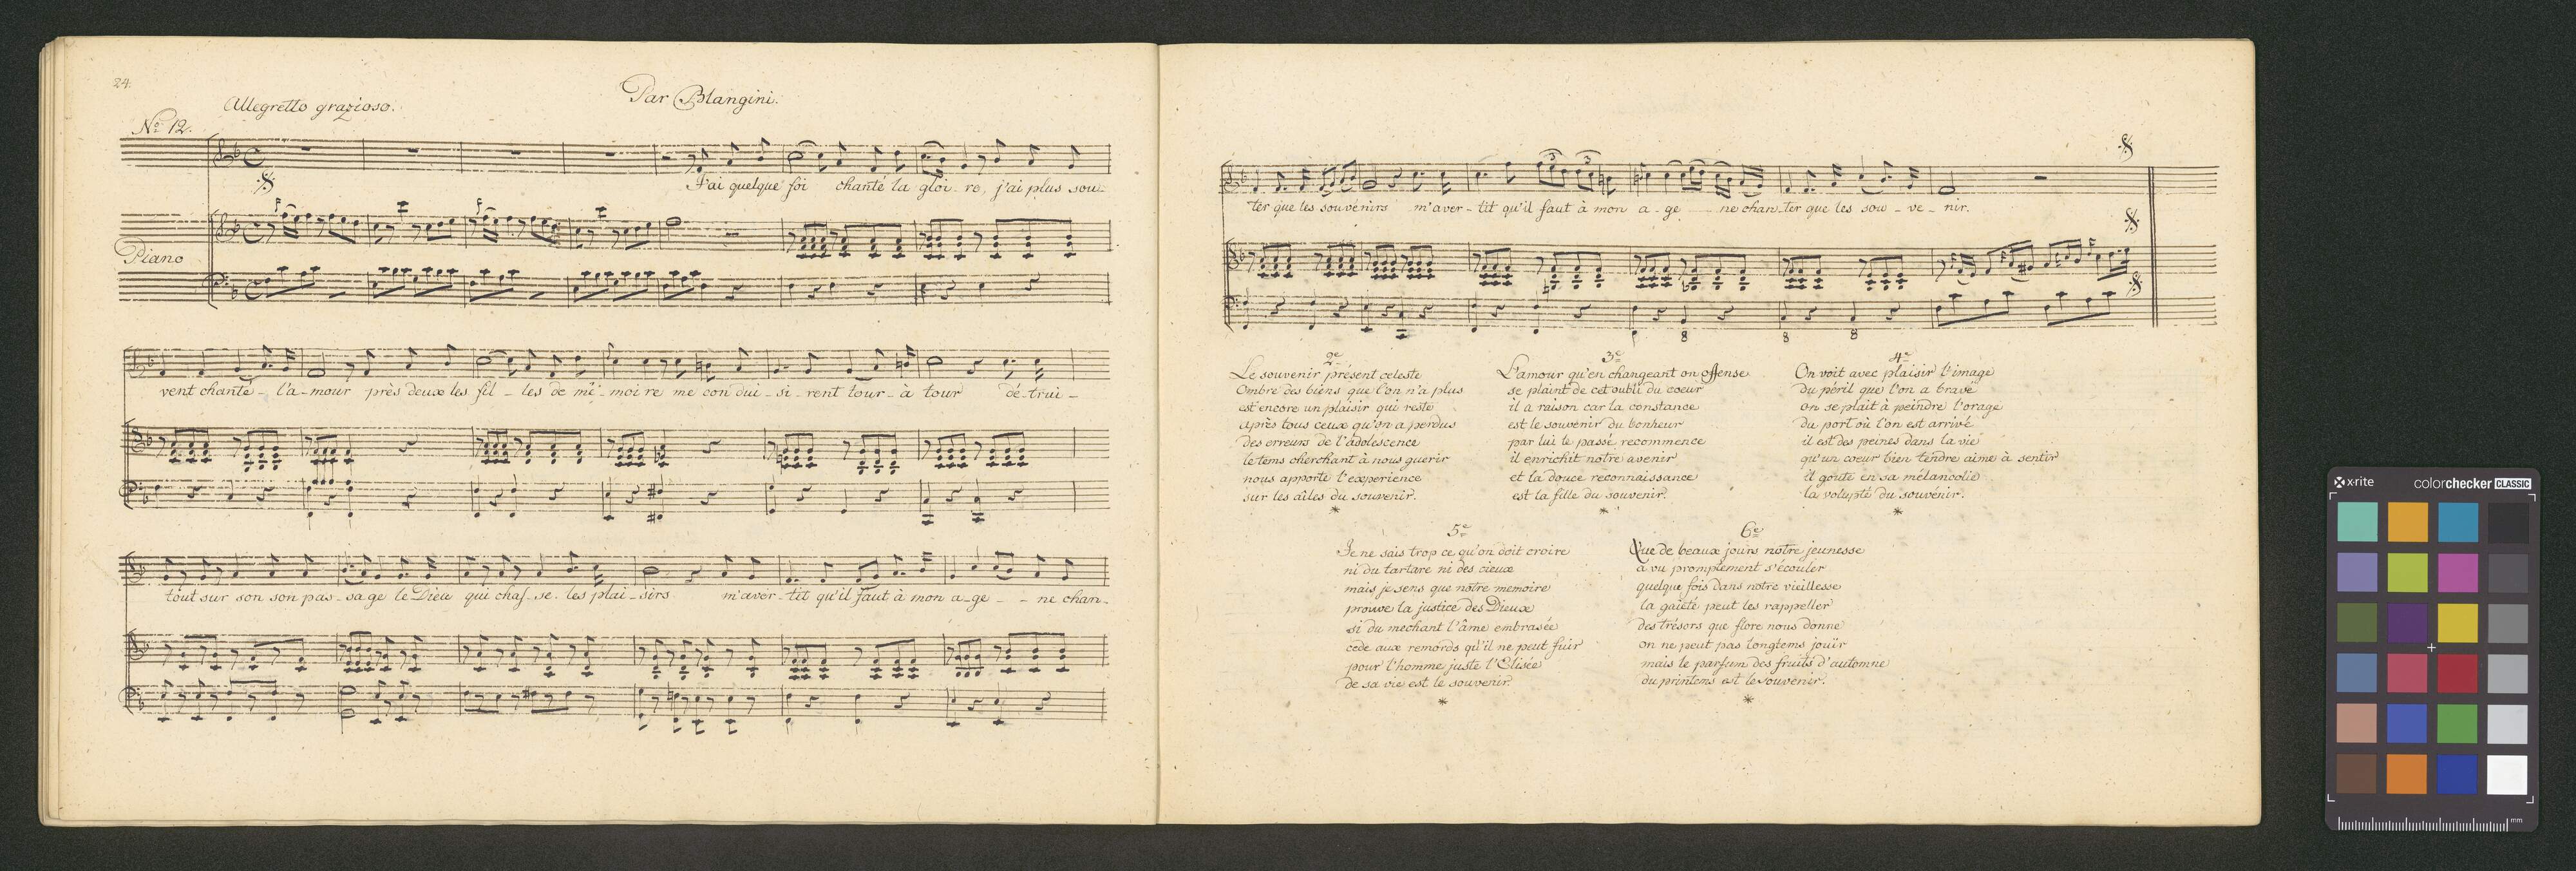 24.
Par Blangini.
Allegretto grazioso.
No. 12.
J'ai quelque foi chanté la gloi - re, j'ai plus sou -
Piano
vent chanté - l'a - mour près deux les fil - les de mé - moi re me con dui - si - rent tour - à tour dé - trui -
tout sur son son pas - sa ge le Dieu qui chas - se les plai - sirs m'aver - tit qu'il faut à mon a - ge - - ne chan -
ter que les souvenirs m'aver - tit qu'il faut à mon a - ge ne chan - ter que les sou - ve - nir.
2e
Le souvenir présent celeste
Ombre des biens que l'on n'a plus
est encore un plaisir qui reste
après tous ceux qu'on a perdus
des erreurs de l'adolescence
le tems cherchant à nous guerir
nous apporte l'experience
sur les aîles du souvenir.
*
3e
L'amour qu'en changeant on offense
se plaint de cet oubli du coeur
il a raison car la constance
est le souvenir du bonheur
par lui le passé recommence
il enrichit notre avenir
et la douce reconnaissance
est la fille du souvenir.
*
4e
On voit avec plaisir l'image
Du péril que l'on a bravé
on se plait à peindre l'orage
du port où l'on est arrivé
il est des peines dans la vie
qu'un coeur bien tendre aime à sentir
il goute en sa mélancolie
la volupté du souvénir.
*
5e
Je ne sais trop ce qu'on doit croire
ni du tartare ni des cieux
mais je sens que notre memoire
prouve la justice des Dieux
si du mechant l'âme embrasée
cede aux remords qu'il ne peut fuir
pour l'homme juste l'Elisée
de sa vie est le souvenir.
*
6e
Que de beaux jours notre jeunesse
a vu promptement s'écouler
quelque fois dans notre vieillesse
la gaieté peut les rappeller
des trésors que flore nous donne
on ne peut pas longtems jouïr
mais le parfum des fruits d'automne
du printems est le souvenir.
*
x-rite colorchecker CLASSIC
mm